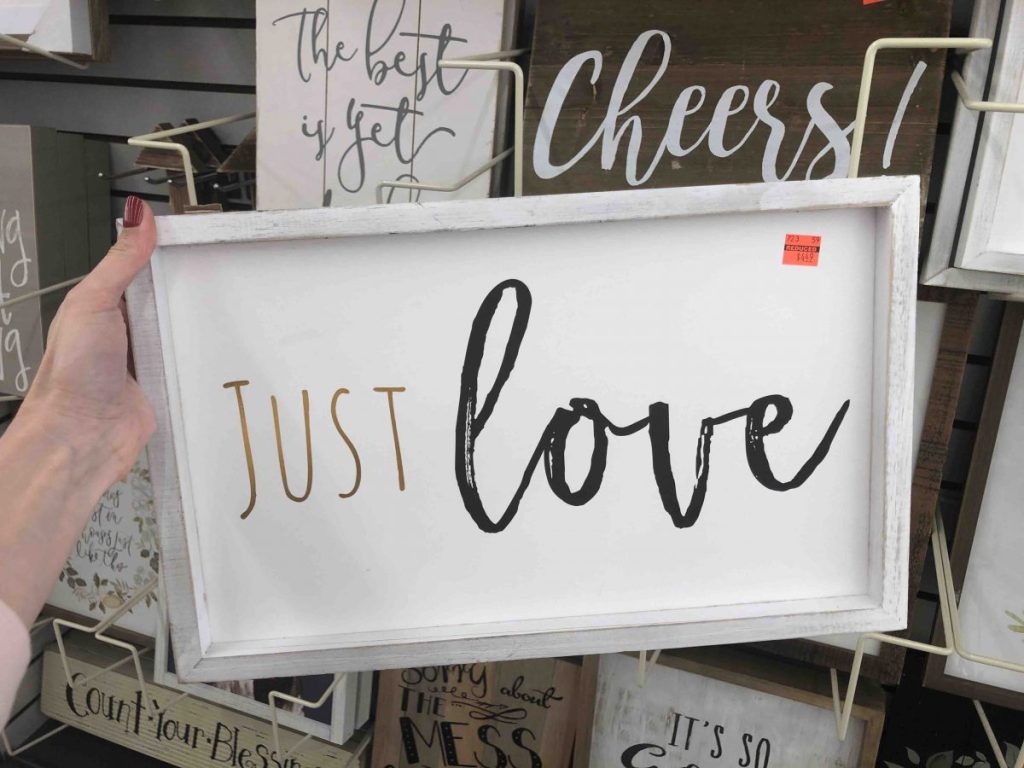 The best
is yet
Cheers!
JUST love
REDUCED
just like this
Count·Your·Blessin
SORRY about
THE
MESS
IT'S SO